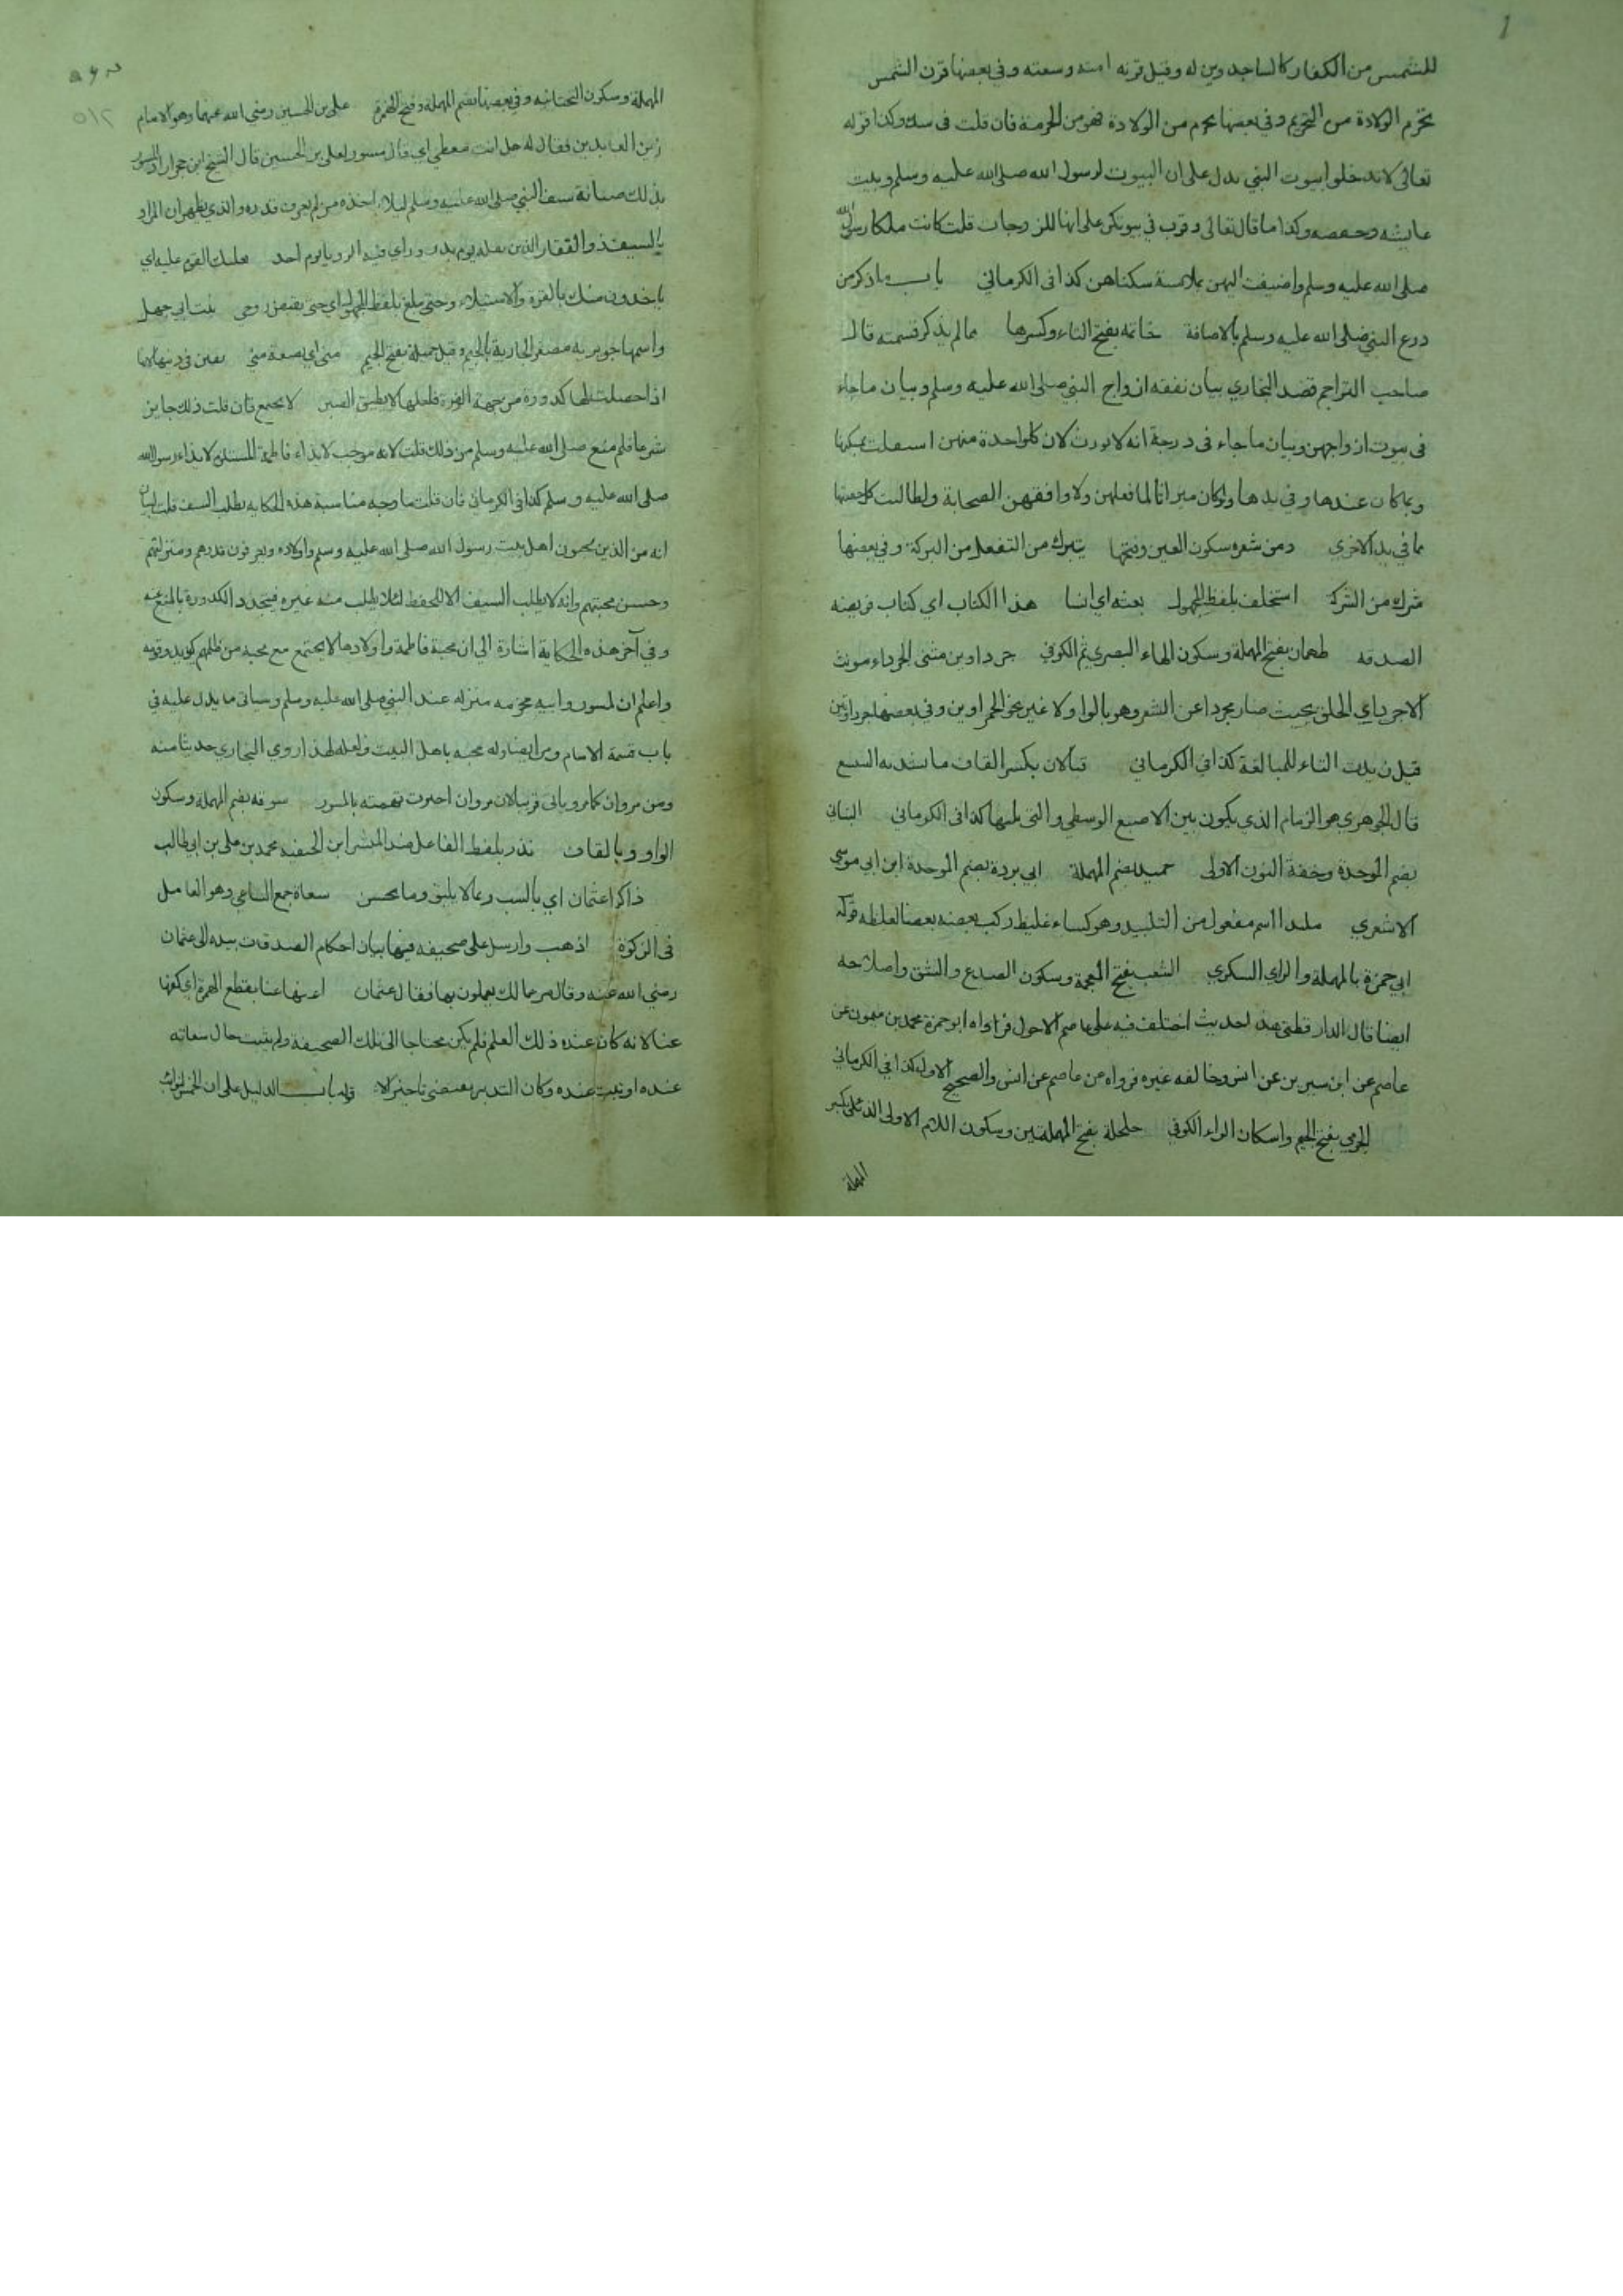 للشمس من الكفار كالساجدين له وقيل قرنه امته وسعته وفي بعضها قرن الشمس
تحرم الولادة من التحريم وفي بعضها يحرم من الولادة فهو من الحرمة فان قلت في وكذا قوله
تعالى لا تدخلوا بيوت النبي يدل على ان البيوت لرسول الله صلى الله عليه وسلم وبيت
عايشه وحفصه وكذا ما قال تعالى وقرن في بيوتكن على انها للزوجات قلت كانت ملكا رسول الله
صلى الله عليه وسلم واضيفت اليهن بملابسة سكناهن كذا في الكرماني باب ما ذكر من
درع النبي صلى الله عليه وسلم بالاضافة خاتمه بفتح التاء وكسرها مما لم يذكر قسمته قال
صاحب التراجم قصد البخاري بيان نفقه ازواج النبي صلى الله عليه وسلم وبيان ما جاء
في بيوت ازواجهن وبيان ما جاء في درجة انه لا يورث لان كل واحدة منهن
وبما كان عندها وفي يدها ولو كان ميراثا لما فعلهن ولا وافقهن الصحابة ولطالبت كل
ما في يد الاخرى ومن شعره سكون العين وفتحها يتبرك من التفعل من البركة وفي بعضها
شرك من الشركة استخلف بلفظ المجهول بعثه اي انسا هذا الكتاب اي كتاب فريضه
الصدقه طهمان بفتح المهملة وسكون الهاء البصري ثم الكوفي جرداوين مثنى الجرداء مونث
الاجرد اي الخلق بحيث صار مجردا عن الشعر وهو بالواو لا غير نحو الحمراوين وفي بعضها جرداتين
قيل زيدت التاء للمبالغة كذا في الكرماني قبالان بكسر القاف ما يشد به الشسع
قال الجوهري هو الزمام الذي يكون بين الاصبع الوسطى والتي تليها كذا في الكرماني البناني
بضم الموحدة وخفة النون الاولى حميد بضم المهملة ابي بردة بضم الموحدة ابن ابي موسى
الاشعري ملبدا اسم مفعول من التلبيد وهو كساء غليظ ركب بعضه بعضا لغلظه قوله
ابي حمزة بالمهملة والزاي السكري الشعب بفتح المعجمة وسكون الصدع والشق واصلاحه
ايضا قال الدارقطني هذا الحديث اختلف فيه على عاصم الاحول فرواه ابو حمزة محمد بن ميمون عن
عاصم عن ابن سيرين عن انس وخالفه غيره فرواه عن عاصم عن انس والصحيح الاول كذا في الكرماني
الجرمي بفتح الجيم واسكان الراء الكوفي حلحلة بفتح المهملتين وسكون اللام الاولى الدئلي بكسر
المهملة
المهملة وسكون التحتانيه وفي بعضها بضم المهملة وفتح الهمزة على بن الحسين رضي الله عنهما وهو الامام
زين العابدين فقال له هل انت معطي اي قال مسور لعلي بن الحسين قال الشيخ ابن حجر
بذلك صيانة سيف النبي صلى الله عليه وسلم ليلا ياخذه من لم يعرف قدره والذي يظهر ان المراد
بالسيف ذو الفقار الذي نفله يوم بدر وراي فيه الرويا يوم احد يغلبك القوم عليه اي
ياخذونه منك بالقوة والاستيلاء وحتى يبلغ بلفظ المجهول اي حتى يقبض روحي بنت ابي جهل
واسمها جويرية مصغر الجارية بالجيم وقيل جميلة بفتح الجيم مني اي بضعة مني يفتن في دينها لانها
اذا حصلت لها كدورة من جهة الغيرة فلعلها لا يطيق الصبر لا يجتمع فان قلت ذلك جايز
شرعا فلم منع صلى الله عليه وسلم من ذلك قلت لانه موجب لايذاء فاطمة المستلزم لايذاء رسول الله
صلى الله عليه وسلم كذا في الكرماني فان قلت ما وجه مناسبة هذه الحكايه بطلب السيف قلت لبيان
انه من الذين يحبون اهل بيت رسول الله صلى الله عليه وسلم واولاده ويعرفون قدرهم ومنزلتهم
وحسن محبتهم وانه لا يطلب السيف الا للحفظ لئلا يطلب منه غيره فيتجدد الكدورة بالمنع عنه
وفي آخر هذه الحكاية اشارة الى ان محبة فاطمة واولادها لا يجتمع مع محبه من ظلمهم كويزيد وقومه
واعلم ان لمسور وابيه مخرمه منزله عند النبي صلى الله عليه وسلم وسياتي ما يدل عليه في
باب قسمة الامام ومن ايضا وله محبه باهل البيت ولعله لهذا روى البخاري حديثا منه
ومن مروان كما مر وياتي احترت بقسمته بالمسور سوقه بضم المهملة وسكون
الواو وبالقاف نذر بلفظ الفاعل ضد المبشر ابن الحنفيه محمد بن علي بن ابي طالب
ذاكرا عثمان اي بالسب وبما لا يليق وما يحسن سعاة جمع الساعي وهو العامل
في الزكوة اذهب وارسل على صحيفه فيها بيان احكام الصدقات بيده الى عثمان
رضي الله عنه وقال مر عمالك يعملون بها فقال عثمان اغنها عنا بقطع الهمزة اي كفها
عنا لانه كان عنده ذلك العلم فلم يكن محتاجا الى تلك الصحيفة ولم يثبت حال سعاته
عنده او ثبت عنده وكان التدبير يقتضي تاخيرا لا قوله باب الدليل على ان الخمس لنوائب